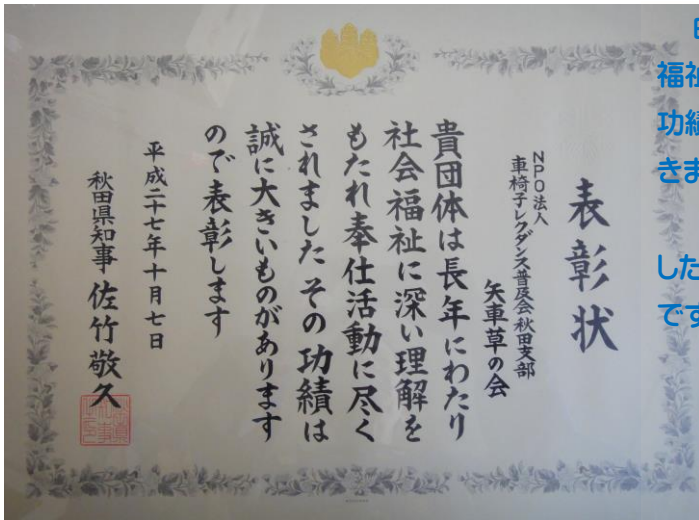 表彰状
NPO法人
車椅子レクダンス普及会秋田支部
矢車草の会
貴団体は長年にわたり
社会福祉に深い理解を
もたれ奉仕活動に尽く
されました その功績は
誠に大きいものがあります
ので表彰します
平成二十七年十月七日
秋田県知事 佐竹敬久
福祉
功績
きま
した
です